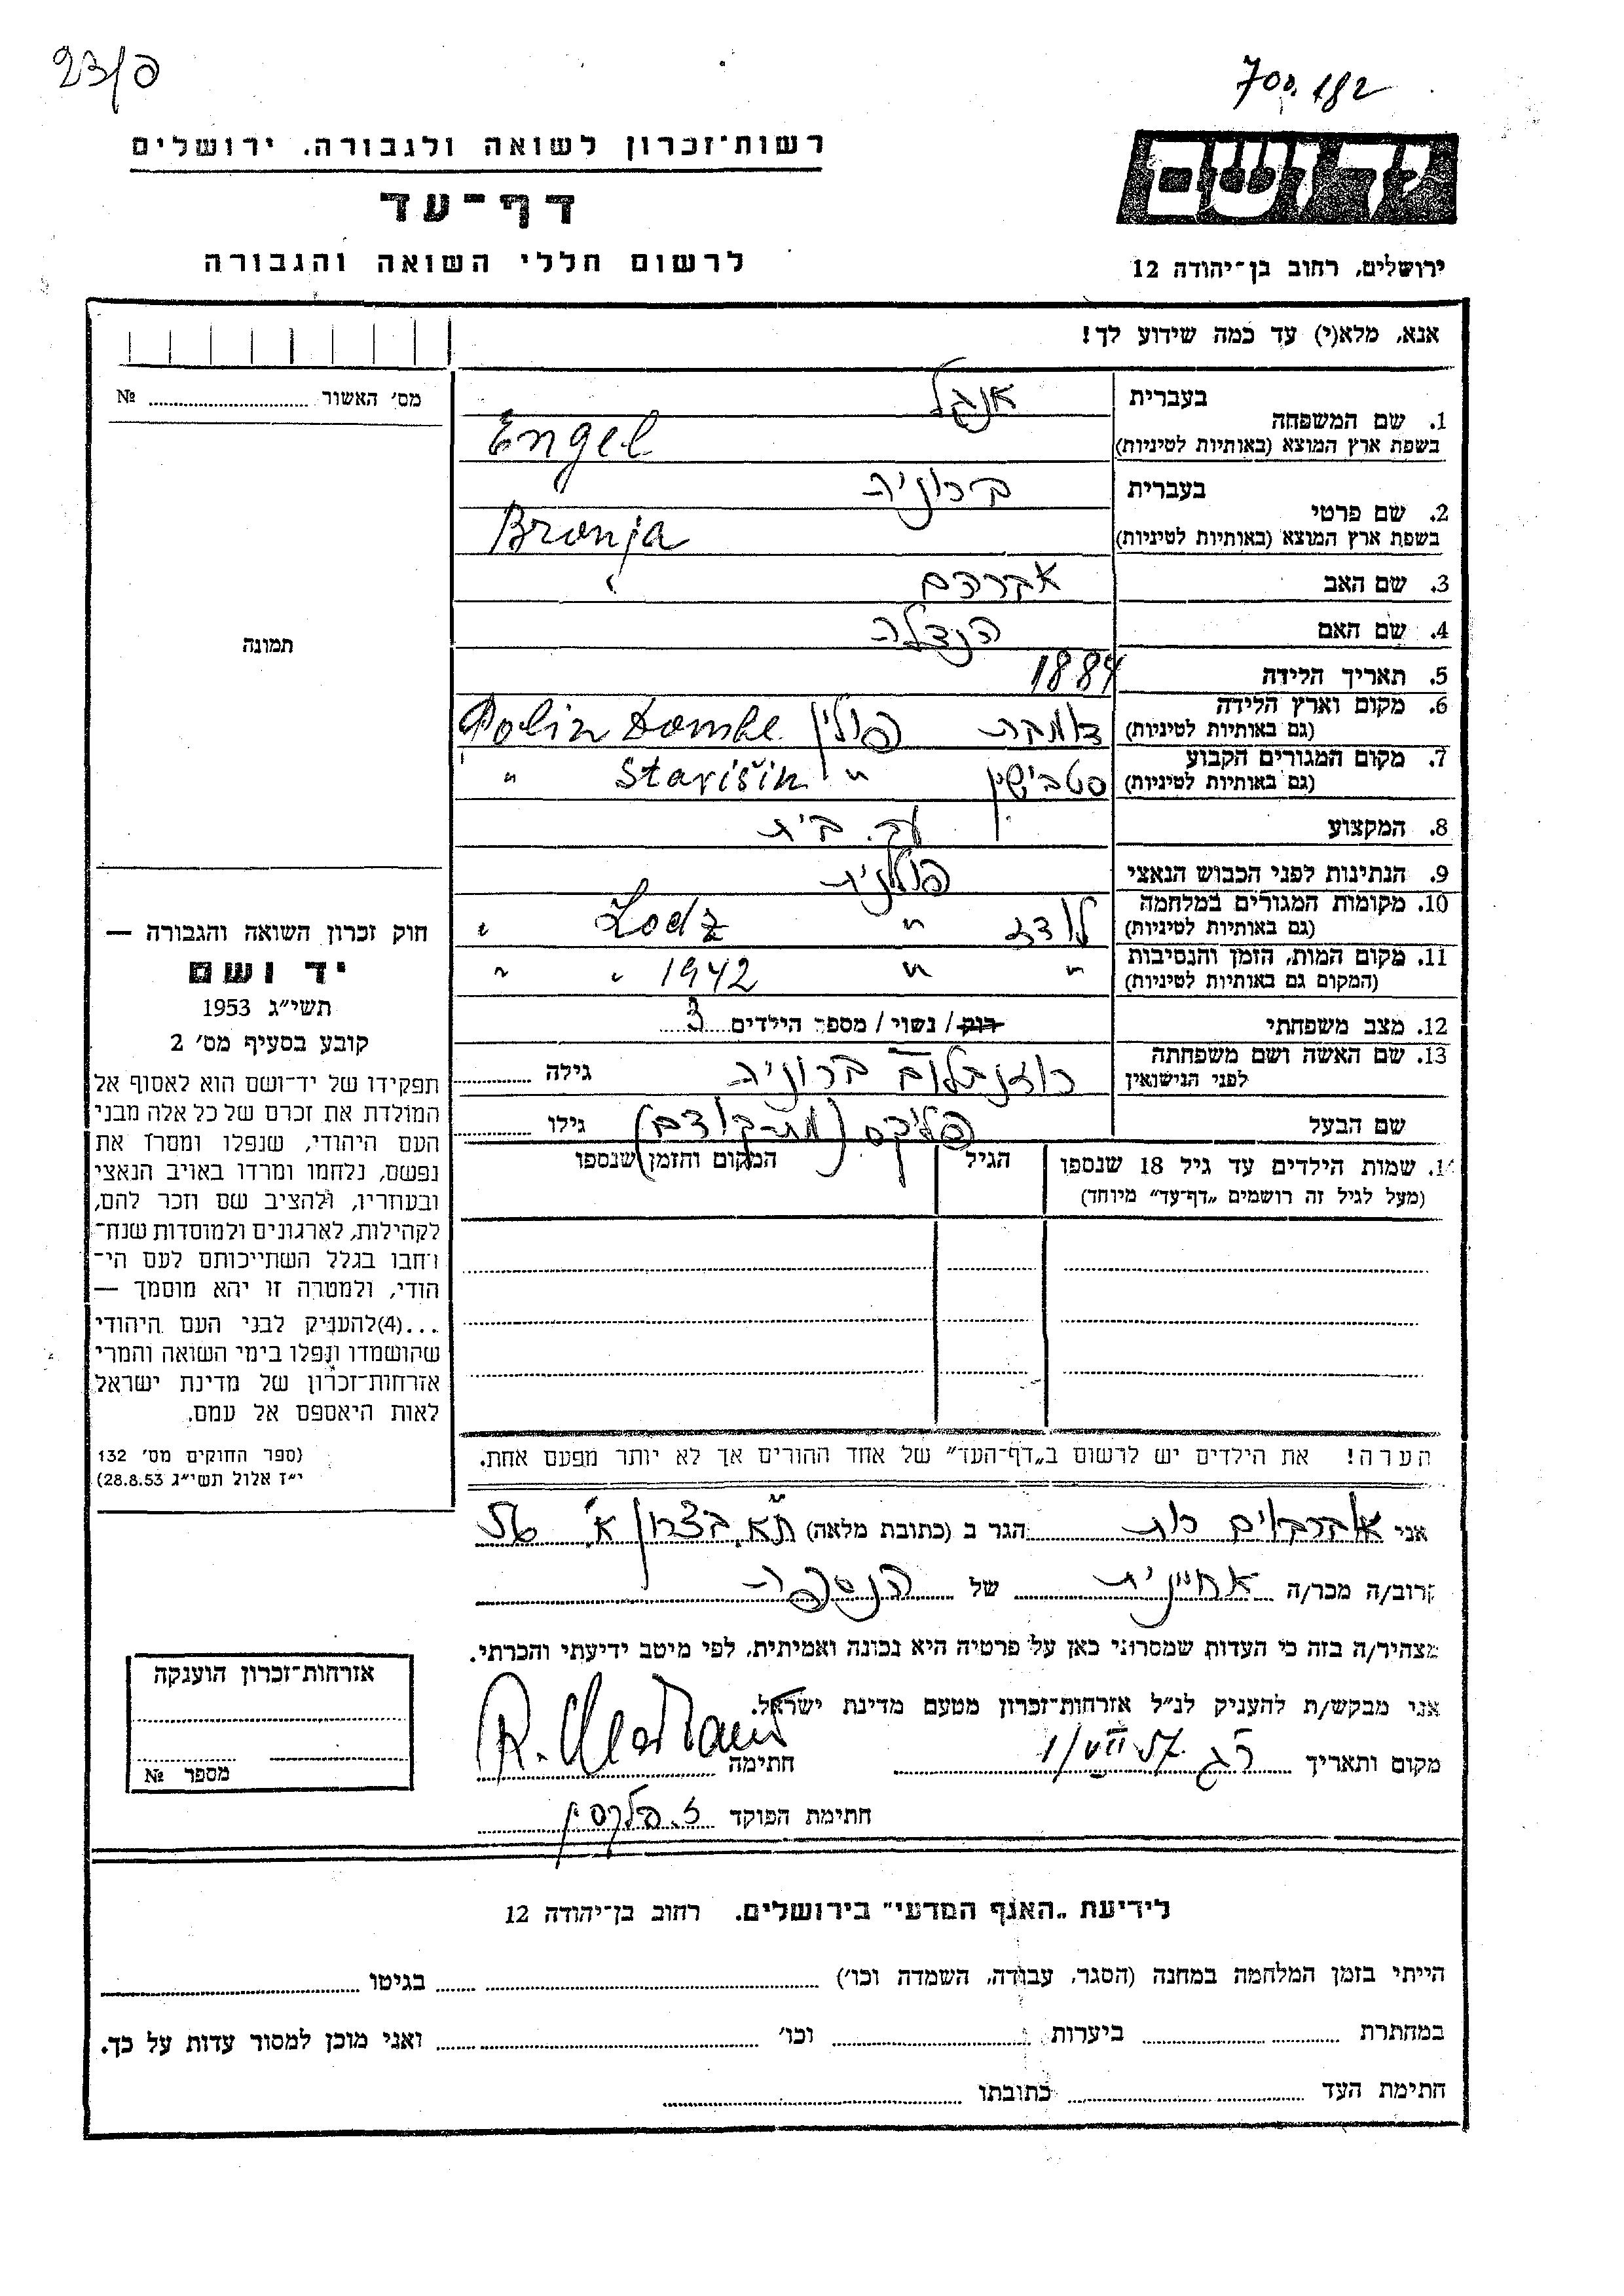 23/פ
700.182
רשות־זכרון לשואה ולגבורה. ירושלים
דף־עד
לרשום חללי השואה והגבורה
ידושם
ירושלים, רחוב בן־יהודה 12
אנא, מלא(י) עד כמה שידוע לך!
מס׳ האשור № 
בעברית אנגל
1. שם המשפחה
בשפת ארץ המוצא (באותיות לטיניות) Engel
בעברית ברוניה
2. שם פרטי
בשפת ארץ המוצא (באותיות לטיניות) Bronja
3. שם האב אברהם
4. שם האם הנצלה
5. תאריך הלידה 1884
6. מקום וארץ הלידה
(גם באותיות לטיניות) דומבה פולין Polin Dombe
7. מקום המגורים הקבוע
(גם באותיות לטיניות) סטבישין " Starišin "
8. המקצוע עק. בית
9. הנתינות לפני הכבוש הנאצי פולנית
10. מקומות המגורים במלחמה
(גם באותיות לטיניות) לודז " Lodz "
11. מקום המות, הזמן והנסיבות
(המקום גם באותיות לטיניות) " " 1942 " "
12. מצב משפחתי רווק / נשוי / מספר הילדים 3
13. שם האשה ושם משפחתה
לפני הנישואין רוזנבלום ברוניה גילה
שם הבעל פליקס גילו
14. שמות הילדים עד גיל 18 שנספו הגיל המקום והזמן שנספו
(מעל לגיל זה רושמים „דף־עד״ מיוחד)
הערה! את הילדים יש לרשום ב„דף־העד״ של אחד ההורים אך לא יותר מפעם אחת.
תמונה
חוק זכרון השואה והגבורה —
יד ושם
תשי״ג 1953
קובע בסעיף מס׳ 2
תפקידו של יד־ושם הוא לאסוף אל
המולדת את זכרם של כל אלה מבני
העם היהודי, שנפלו ומסרו את
נפשם, נלחמו ומרדו באויב הנאצי
ובעוזריו, ולהציב שם וזכר להם,
לקהילות, לארגונים ולמוסדות שנח־
רבו בגלל השתייכותם לעם הי־
הודי, ולמטרה זו יהא מוסמך —
...(4)להעניק לבני העם היהודי
שהושמדו ונפלו בימי השואה והמרי
אזרחות־זכרון של מדינת ישראל
לאות היאספם אל עמם.
(ספר החוקים מס׳ 132
י״ז אלול תשי״ג 28.8.53)
אני רות הגר ב (כתובת מלאה) ת״א בצרון א׳
קרוב/ה מכר/ה אחיינית של הנספה
מצהיר/ה בזה כי העדות שמסרתי כאן על פרטיה היא נכונה ואמיתית, לפי מיטב ידיעתי והכרתי.
אני מבקש/ת להעניק לנ״ל אזרחות־זכרון מטעם מדינת ישראל.
מקום ותאריך ר״ג 1/VII 57 חתימה
חתימת הפוקד
אזרחות־זכרון הוענקה
מספר №
לידיעת „האגף המדעי״ בירושלים. רחוב בן־יהודה 12
הייתי בזמן המלחמה במחנה (הסגר, עבודה, השמדה וכו׳) בגיטו
במחתרת ביערות וכו׳ ואני מוכן למסור עדות על כך.
חתימת העד כתובתו